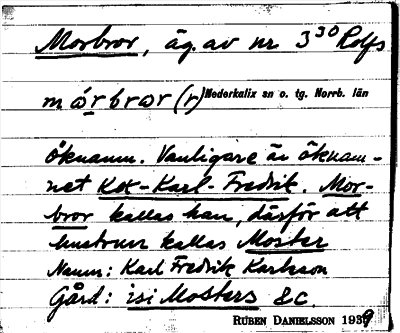 Morbror, äg. av nr 3³⁰ Rolfs
márbror (r) Nederkalix sn o. tg. Norrb. län
Öknamn. Vanligare är öknam-
net Kok-Karl-Fredrik. Mor-
bror kallas han, därför att
hustrun kallas Moster
Namn: Karl Fredrik Karlsson
Gård: isi Mosters &c.
RUBEN DANIELSSON 1939